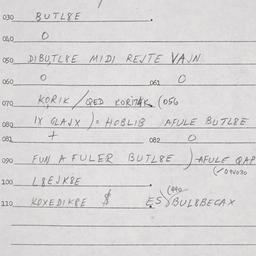 030 BUTL8E .
040 O
050 DIBUTL8E MIDI REJTE VAJN
060 O 061 O
070 KORIK / QED KORITAK (056
080 IX GLAJX ) = HOBLIB AFULE BUTL8E
081 + 082 O
090 FUN A FULER BUTL8E ) AFULE QAP
100 L8EJK8E .
110 KOXEDIKRE $ ES) BUL8BECAX